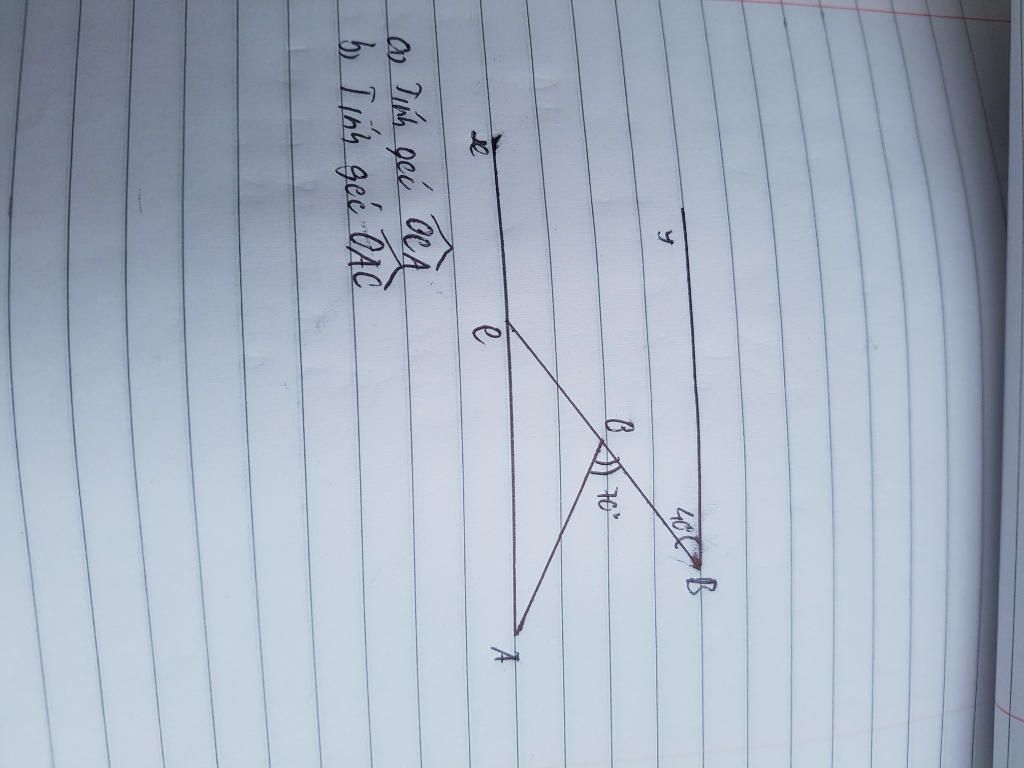 x
y
C
O
70°
40°
A
B
a) Tính góc OCA
b) Tính góc OAC